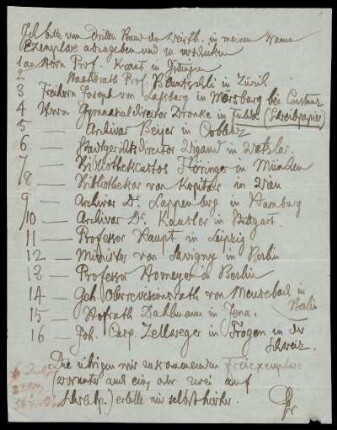 Ich bitte vom dritten Band der Weisth. in meinem Namen
Exemplare abzugeben und zu
1 an Herrn Prof.
2 Staatsrath Prof. Bluntschli in Zürich
3 Freiherrn Joseph von Lassberg in Mersburg bei Constanz
4 Herrn Gymnasialdirector Dronke in Fulda (Schreibpapier)
5 — Archivar Beyer in Coblenz
6 — director Wigand in Wetzlar.
7 — Föringer in München
8 — von Kopitar in Wien
9 — Archivar Dr. Lappenberg in Hamburg
10 — Archivar Dr. Kausler in Stuttgart.
11 — Professor Haupt in Leipzig
12 — Minister von Savigny in Berlin
13 — Professor Homeyer in Berlin
14 — Geh. Oberrevisionsrath von Meusebach in Berlin
15 — Hofrath Dahlmann in Jena.
16 — Joh. Casp. Zellweger in Trogen in der
Schweiz.
Die übrigen mir zukommenden Freiexemplare
(worunter auch ein, oder zwei auf
) erbitte mir selbst hierher.
Gr